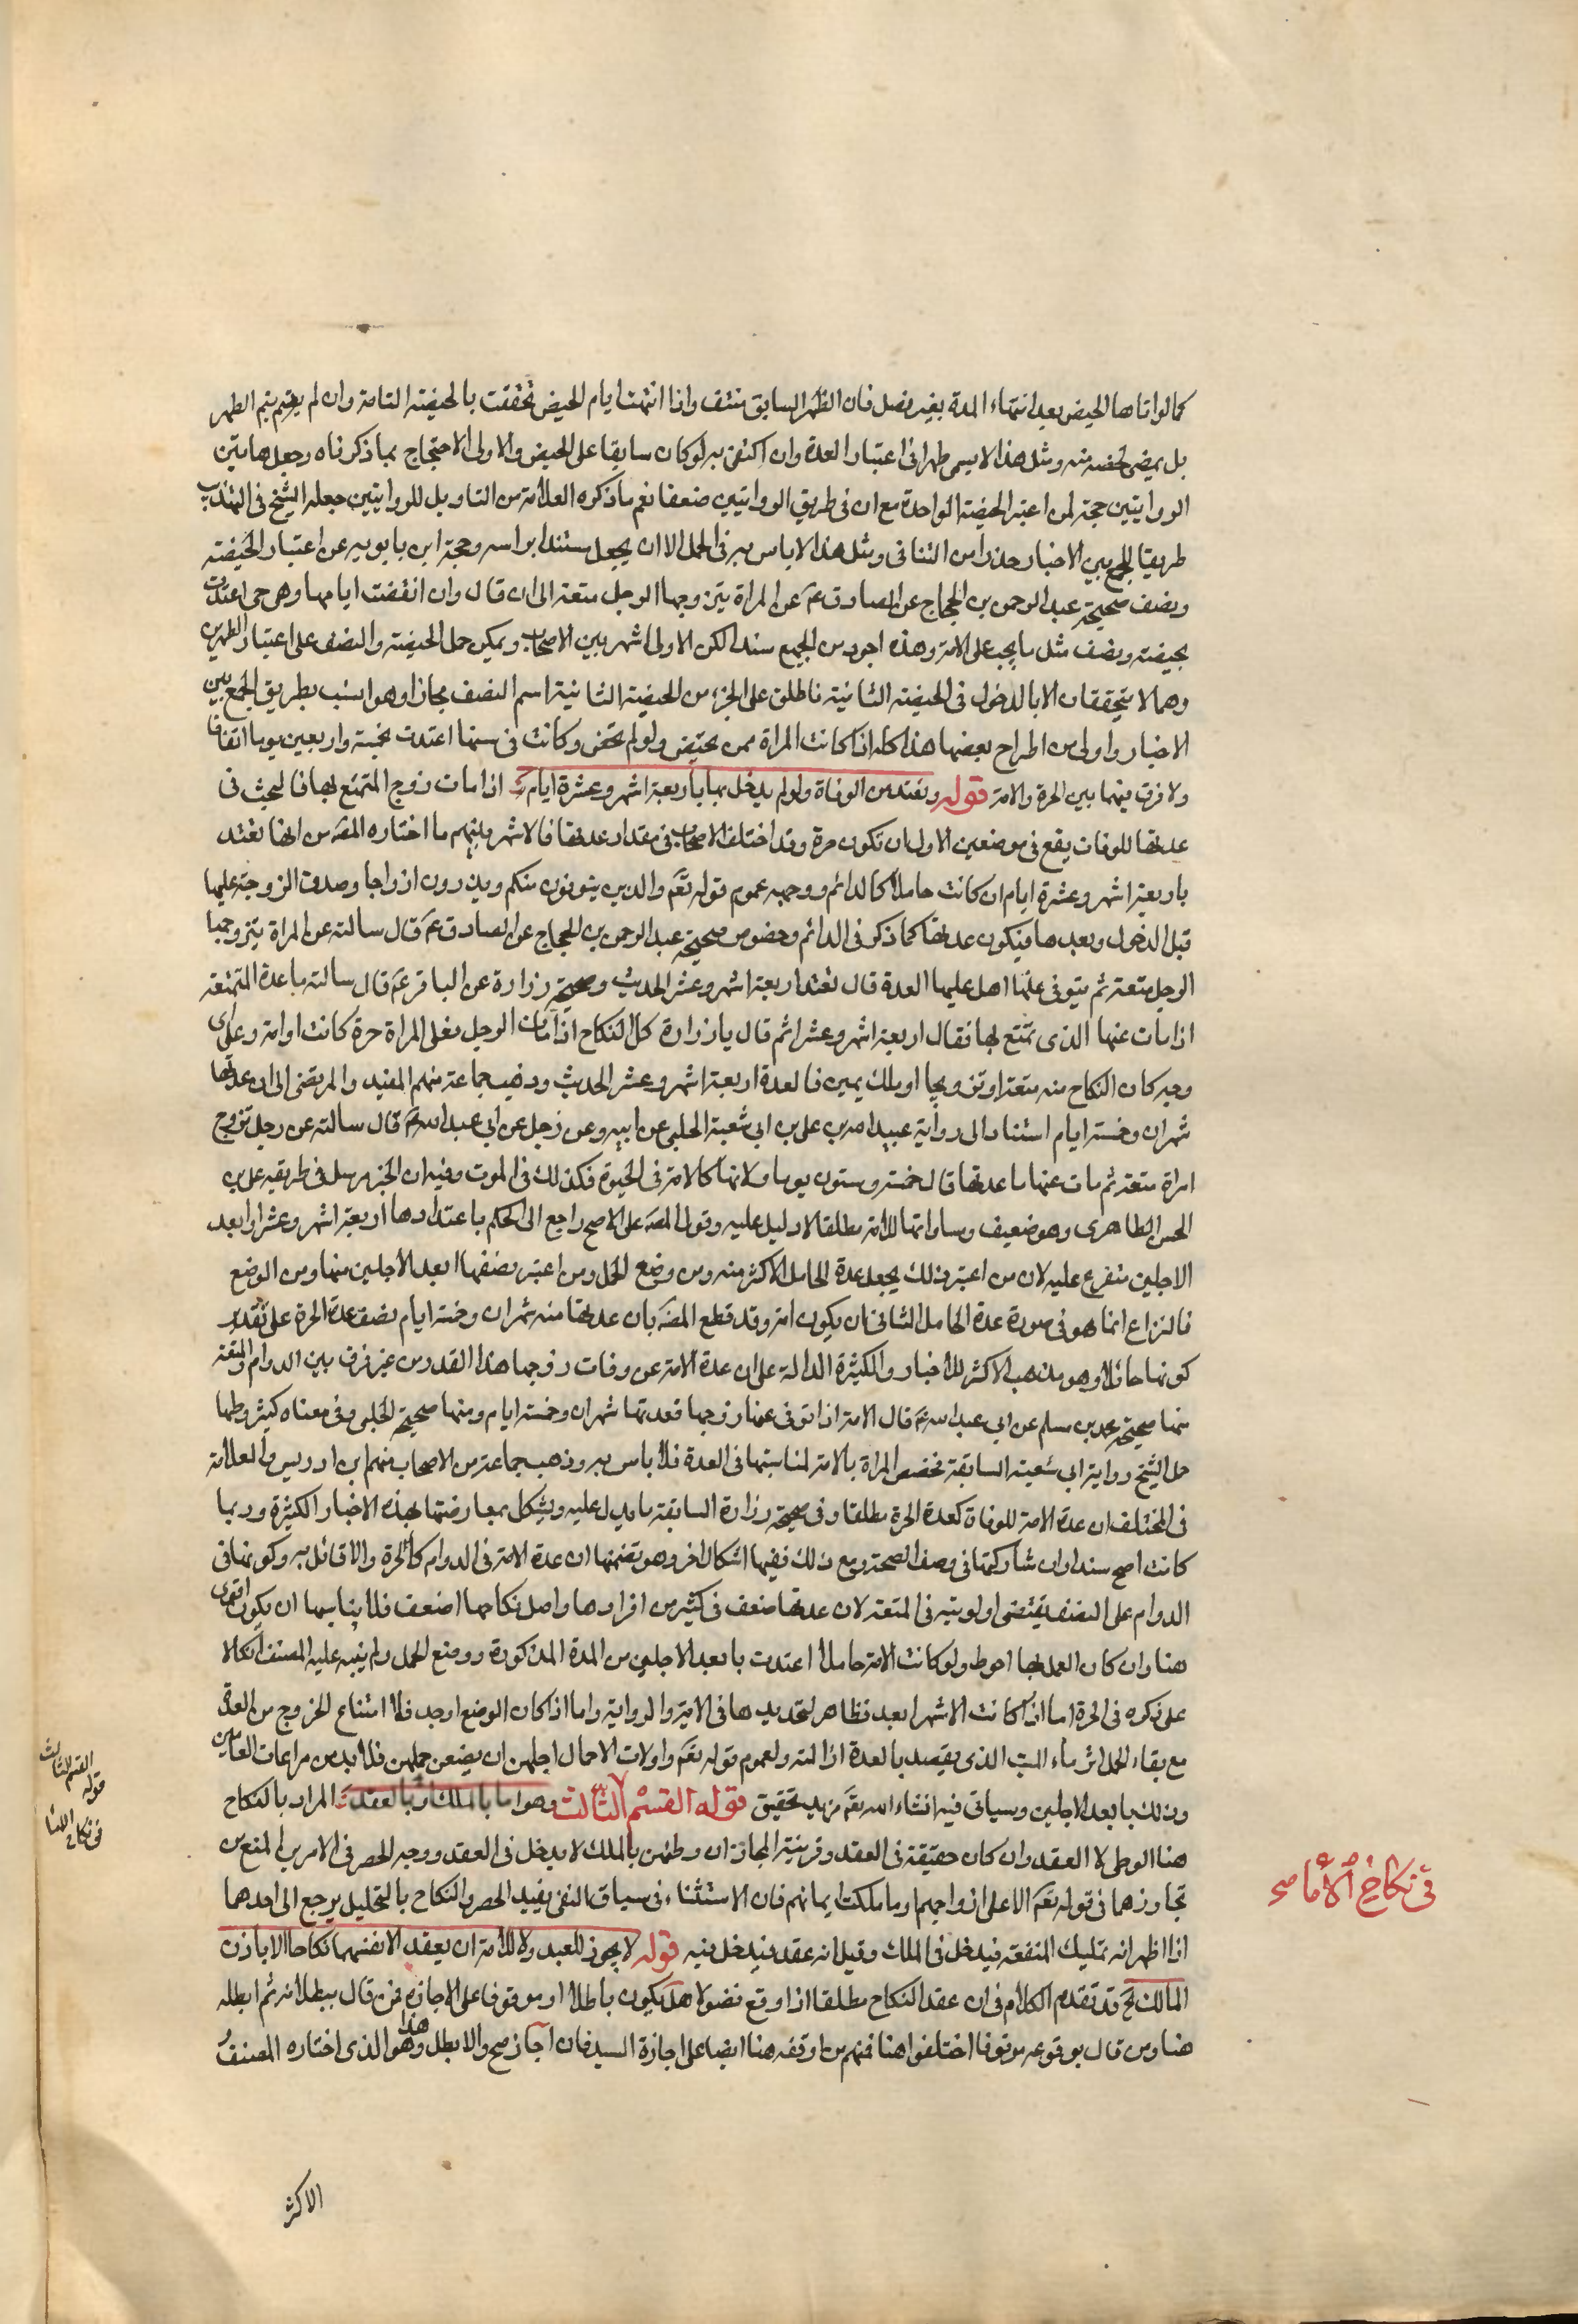 كما لو اتاها الحيض بعد انتهاء المدة بغير فصل فان الطهر السابق منتف واذا انتهت ايام الحيض تحققت بالحيضة التامة وان لم يتم الطهر
بل بمضي لحظة منه ومثل هذا لا يسمى طهرا في اعتبار العدة وان اكتفى به لو كان سابقا على الحيض والاولى الاحتجاج بما ذكرناه وجعل هاتين
الروايتين حجة لمن اعتبر الحيضة الواحدة مع ان في طريق الروايتين ضعفا نعم ما ذكره العلامة من التاويل للروايتين جعله الشيخ في التهذيب
طريقا للجمع بين الاخبار حذرا من التنافي ومثل هذا لا باس به في الحمل لا ان يجعل مستندا براسه وحجة ابن بابويه عن اعتبار الحيضة
ونصف صحيحة عبد الرحمن بن الحجاج عن الصادق ع عن المراة يتزوجها الرجل متعة الى ان قال وان انقضت ايامها وهي حي اعتدت
بحيضة ونصف مثل ما يجب على الامة وهذه اجود من الجميع سندا لكن الاولى اشهر بين الاصحاب ويمكن حمل الحيضة والنصف على اعتبار الطهرين
وهما لا يتحققان الا بالدخول في الحيضة الثانية فاطلق على الجزء من الحيضة الثانية اسم النصف مجازا وهو انسب بطريق الجمع بين
الاخبار واولى من اطراح بعضها هذا كله اذا كانت المراة ممن يحتيض ولو لم تحض وكانت في سنها اعتدت بخمسة واربعين يوما اتفاقا
ولا فرق فيهما بين الحرة والامة قوله وتعتد من الوفاة ولو لم يدخل بها باربعة اشهر وعشرة ايام اذا مات زوج المتمتع بها فالبحث في
عدتها للوفات يقع في موضعين الاول ان تكون حرة وقد اختلف الاصحاب في مقدار عدتها فالاشهر بينهم ما اختاره المص من انها تعتد
باربعة اشهر وعشرة ايام ان كانت حاملا كالدائم ووجهه عموم قوله تع والذين يتوفون منكم ويذرون ازواجا وصدق الزوجة عليها
قبل الدخول وبعدها فيكون عدتها كما ذكر في الدائم وخصوص صحيحة عبد الرحمن بن الحجاج عن الصادق ع قال سالته عن المراة يتزوجها
الرجل متعة ثم يتوفى عنها هل عليها العدة قال تعتد اربعة اشهر وعشر الحديث وصحيحة زرارة عن الباقر ع قال سالته ما عدة المتمتعة
اذا مات عنها الذي تمتع بها فقال اربعة اشهر وعشرا ثم قال يا زرارة كل النكاح اذا مات الرجل فعلى المراة حرة كانت او امة وعلى اي
وجه كان النكاح منه متعة او تزويجا او ملك يمين فالعدة اربعة اشهر وعشر الحديث وذهب جماعة منهم المفيد والمرتضى الى ان عدتها
شهران وخمسة ايام استنادا الى رواية عبيد الله بن علي بن ابي شعبة الحلبي عن ابيه وعن رجل عن ابي عبد الله ع قال سالته عن رجل تزوج
امراة متعة ثم مات عنها ما عدتها قال خمسة وستون يوما ولانها كالامة في الحيوة فكذلك في الموت وفيه ان الخبر مرسل في طريقه علي بن
الحسن الطاهري وهو ضعيف ومساواتها للامة مطلقا لا دليل عليه وقول المص على الاصح راجع الى الحكم باعتدادها اربعة اشهر وعشرا وابعد
الاجلين متفرع عليه لان من اعتبر ذلك يجعل عدة الحامل الاكثر منه ومن وضع الحمل ومن اعتبر نصفها ابعد الاجلين منها ومن الوضع
فالنزاع انما هو في صورة عدة الحامل الثاني ان يكون امة وقد قطع المص بان عدتها منه شهران وخمسة ايام نصف عدة الحرة على تقدير
كونها حائلا وهو مذهب الاكثر للاخبار والكثيرة الدالة على ان عدة الامة عن وفات زوجها هذا القدر من غير فرق بين الدوام والمتعة
منها صحيحة محمد بن مسلم عن ابي عبد الله ع قال الامة اذا توفى عنها زوجها فعدتها شهران وخمسة ايام ومنها صحيحة الحلبي وفي معناه كثير وطها
حمل الشيخ رواية ابي شعبة السابقة تخصص المراة بالامة لمناسبتها في العدة فلا باس به وذهب جماعة من الاصحاب منهم ابن ادريس والعلامة
في المختلف ان عدة الامة للوفاة كعدة الحرة مطلقا وفي صحيحة زرارة السابقة ما يدل عليه ويشكل بمعارضتها بهذه الاخبار الكثيرة وربما
كانت اصح سندا وان شاركتها في وصف الصحة ومع ذلك ففيها اشكال اخر وهو تضمنها ان عدة الامة في الدوام كالحرة والا قائل به وكونها في
الدوام على النصف يقتضي اولويته في المتعة لان عدتها ضعف في كثير من افرادها واصل نكاحها اضعف فلا يناسبها ان يكون اقوى
هنا وان كان العمل بها احوط ولو كانت الامة حاملا اعتدت بابعد الاجلين من المدة المذكورة ووضع الحمل ولم ينبه عليه المصنف اتكالا
على ذكره في الحرة اما اذا كانت الاشهر ابعد فظاهر لتحديدها في الاية والرواية واما اذا كان الوضع اوجد فلا امتناع الخروج من العدة
مع بقاء الحمل اثر ماء الميت الذي يقصد بالعدة ازالته ولعموم قوله تع واولات الاحمال اجلهن ان يضعن حملهن فلا بد من مراعات العامين
وذلك بابعد الاجلين وسياتي فيه انشاء الله تع مزيد تحقيق قوله القسم الثالث وهو اما بالملك او بالعقد المراد بالنكاح
هنا الوطي لا العقد وان كان حقيقة في العقد وقرينة المجاز ان وطئهن بالملك لا يدخل في العقد ووجه الحصر في الامرين المنع من
تجاوزهما في قوله تع الا على ازواجهم او ما ملكت ايمانهم فان الاستثناء في سياق النفي يفيد الحصر والنكاح بالتحليل يرجع الى احدهما
اذا اظهر انه تمليك المنفعة فيدخل في الملك وقيل انه عقد فيدخل فيه قوله لا يجوز للعبد ولا للامة ان يعقد الانفسهما نكاحا الا باذن
المالك الخ قد تقدم الكلام في ان عقد النكاح مطلقا اذا وقع فضولا هل يكون باطلا او موقوفا على الاجازة فمن قال ببطلانه ثم ابطله
هنا ومن قال بوقوعه موقوفا اختلفوا هنا فمنهم من اوقفه هنا ايضا على اجازة السيد فان اجاز صح والا بطل وهذا هو الذي اختاره المصنف
الاكثر
القسم الثالث
قوله
في نكاح الاما
في نكاح الأما صح